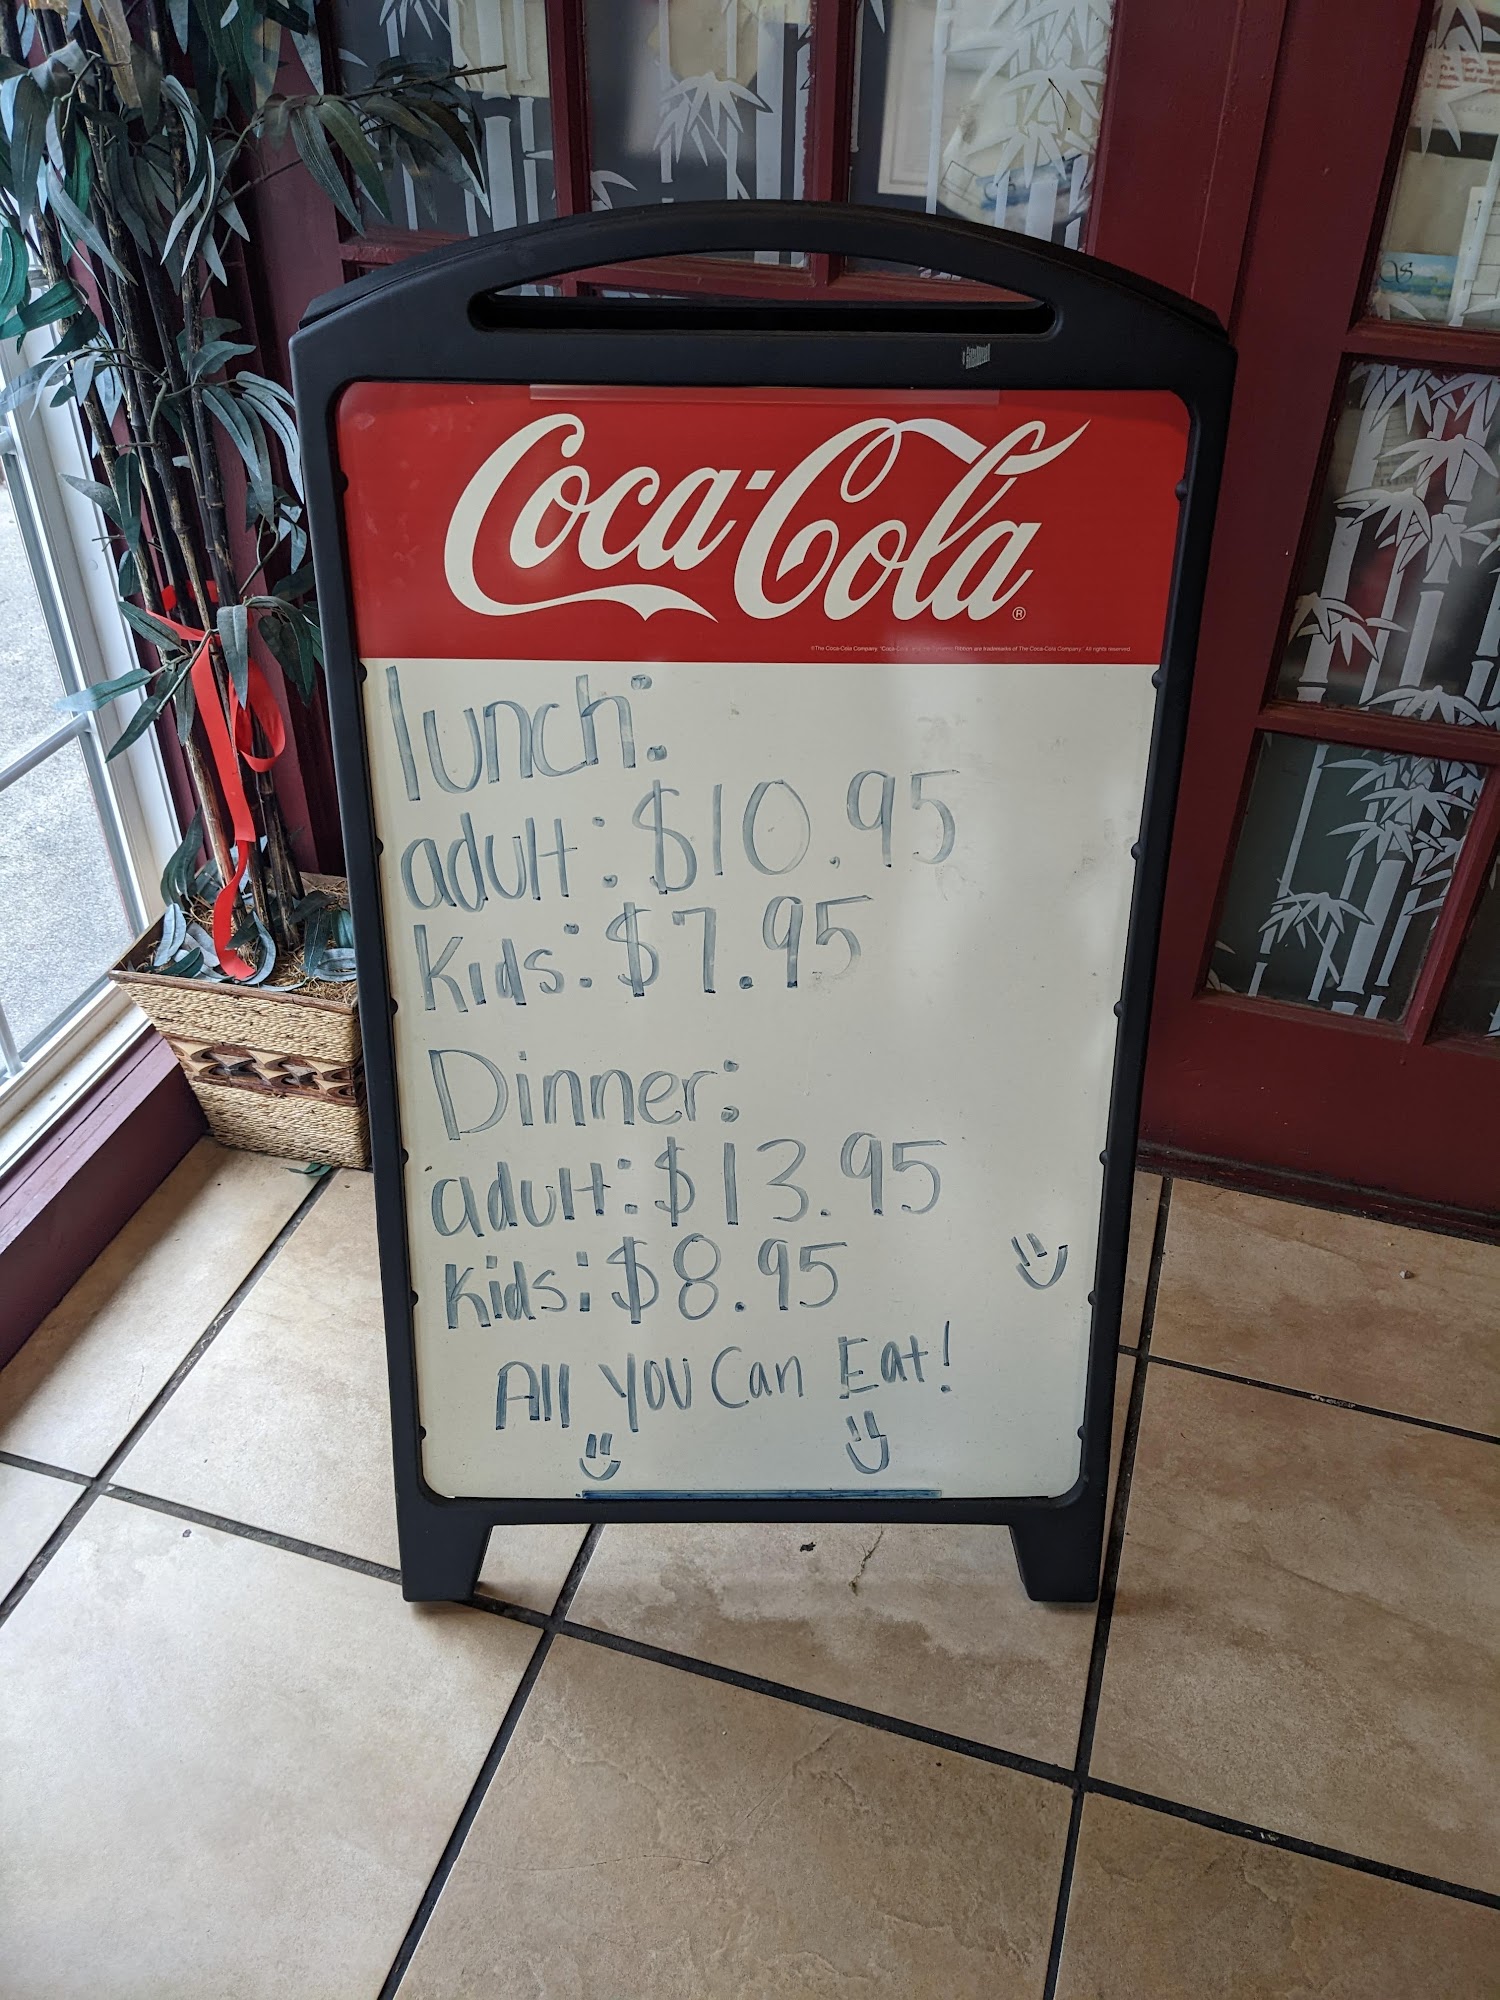 Coca-Cola®
©The Coca-Cola Company. "Coca-Cola" and the Dynamic Ribbon are trademarks of The Coca-Cola Company. All rights reserved.
lunch:
adult: $10.95
Kids: $7.95
Dinner:
adult: $13.95
Kids: $8.95
All You Can Eat!